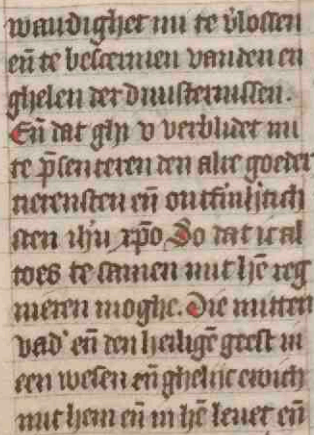 waudighet mi te v̓lossen
eñ te bescermen vanden en
ghelen der duusternissen.
Eñ dat ghi v verblidet mi
te p̄senteren den alre goeder
tierensten eñ
sten ihū xp̄o So dat ic al
toes te samen mit hē reg
neren moghe. Die mitten
vad' eñ den heiligē geest in
een wesen eñ ghelijc ewich
mit hem eñ in hē leuet eñ